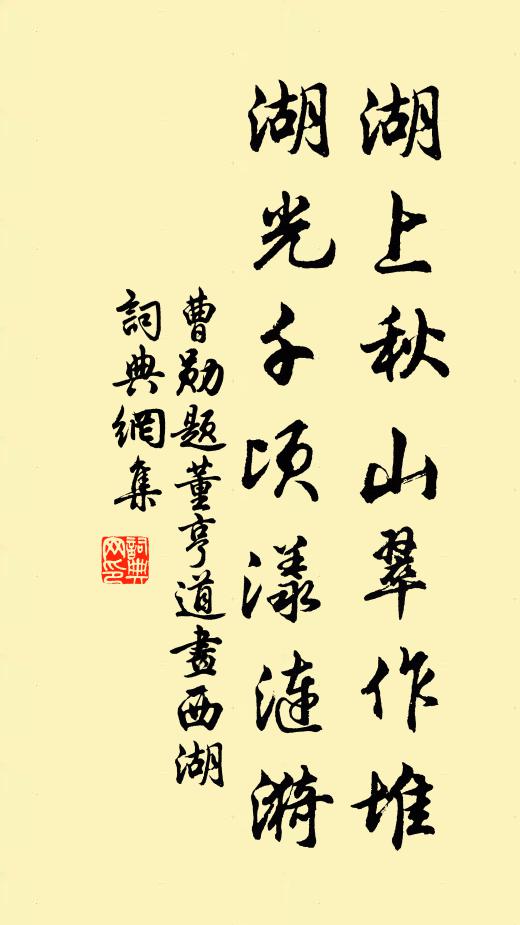 湖上秋山翠作堆
湖光千頃漾漣漪
曹勋題董亨道畫西湖
詞典網集
詞典網印